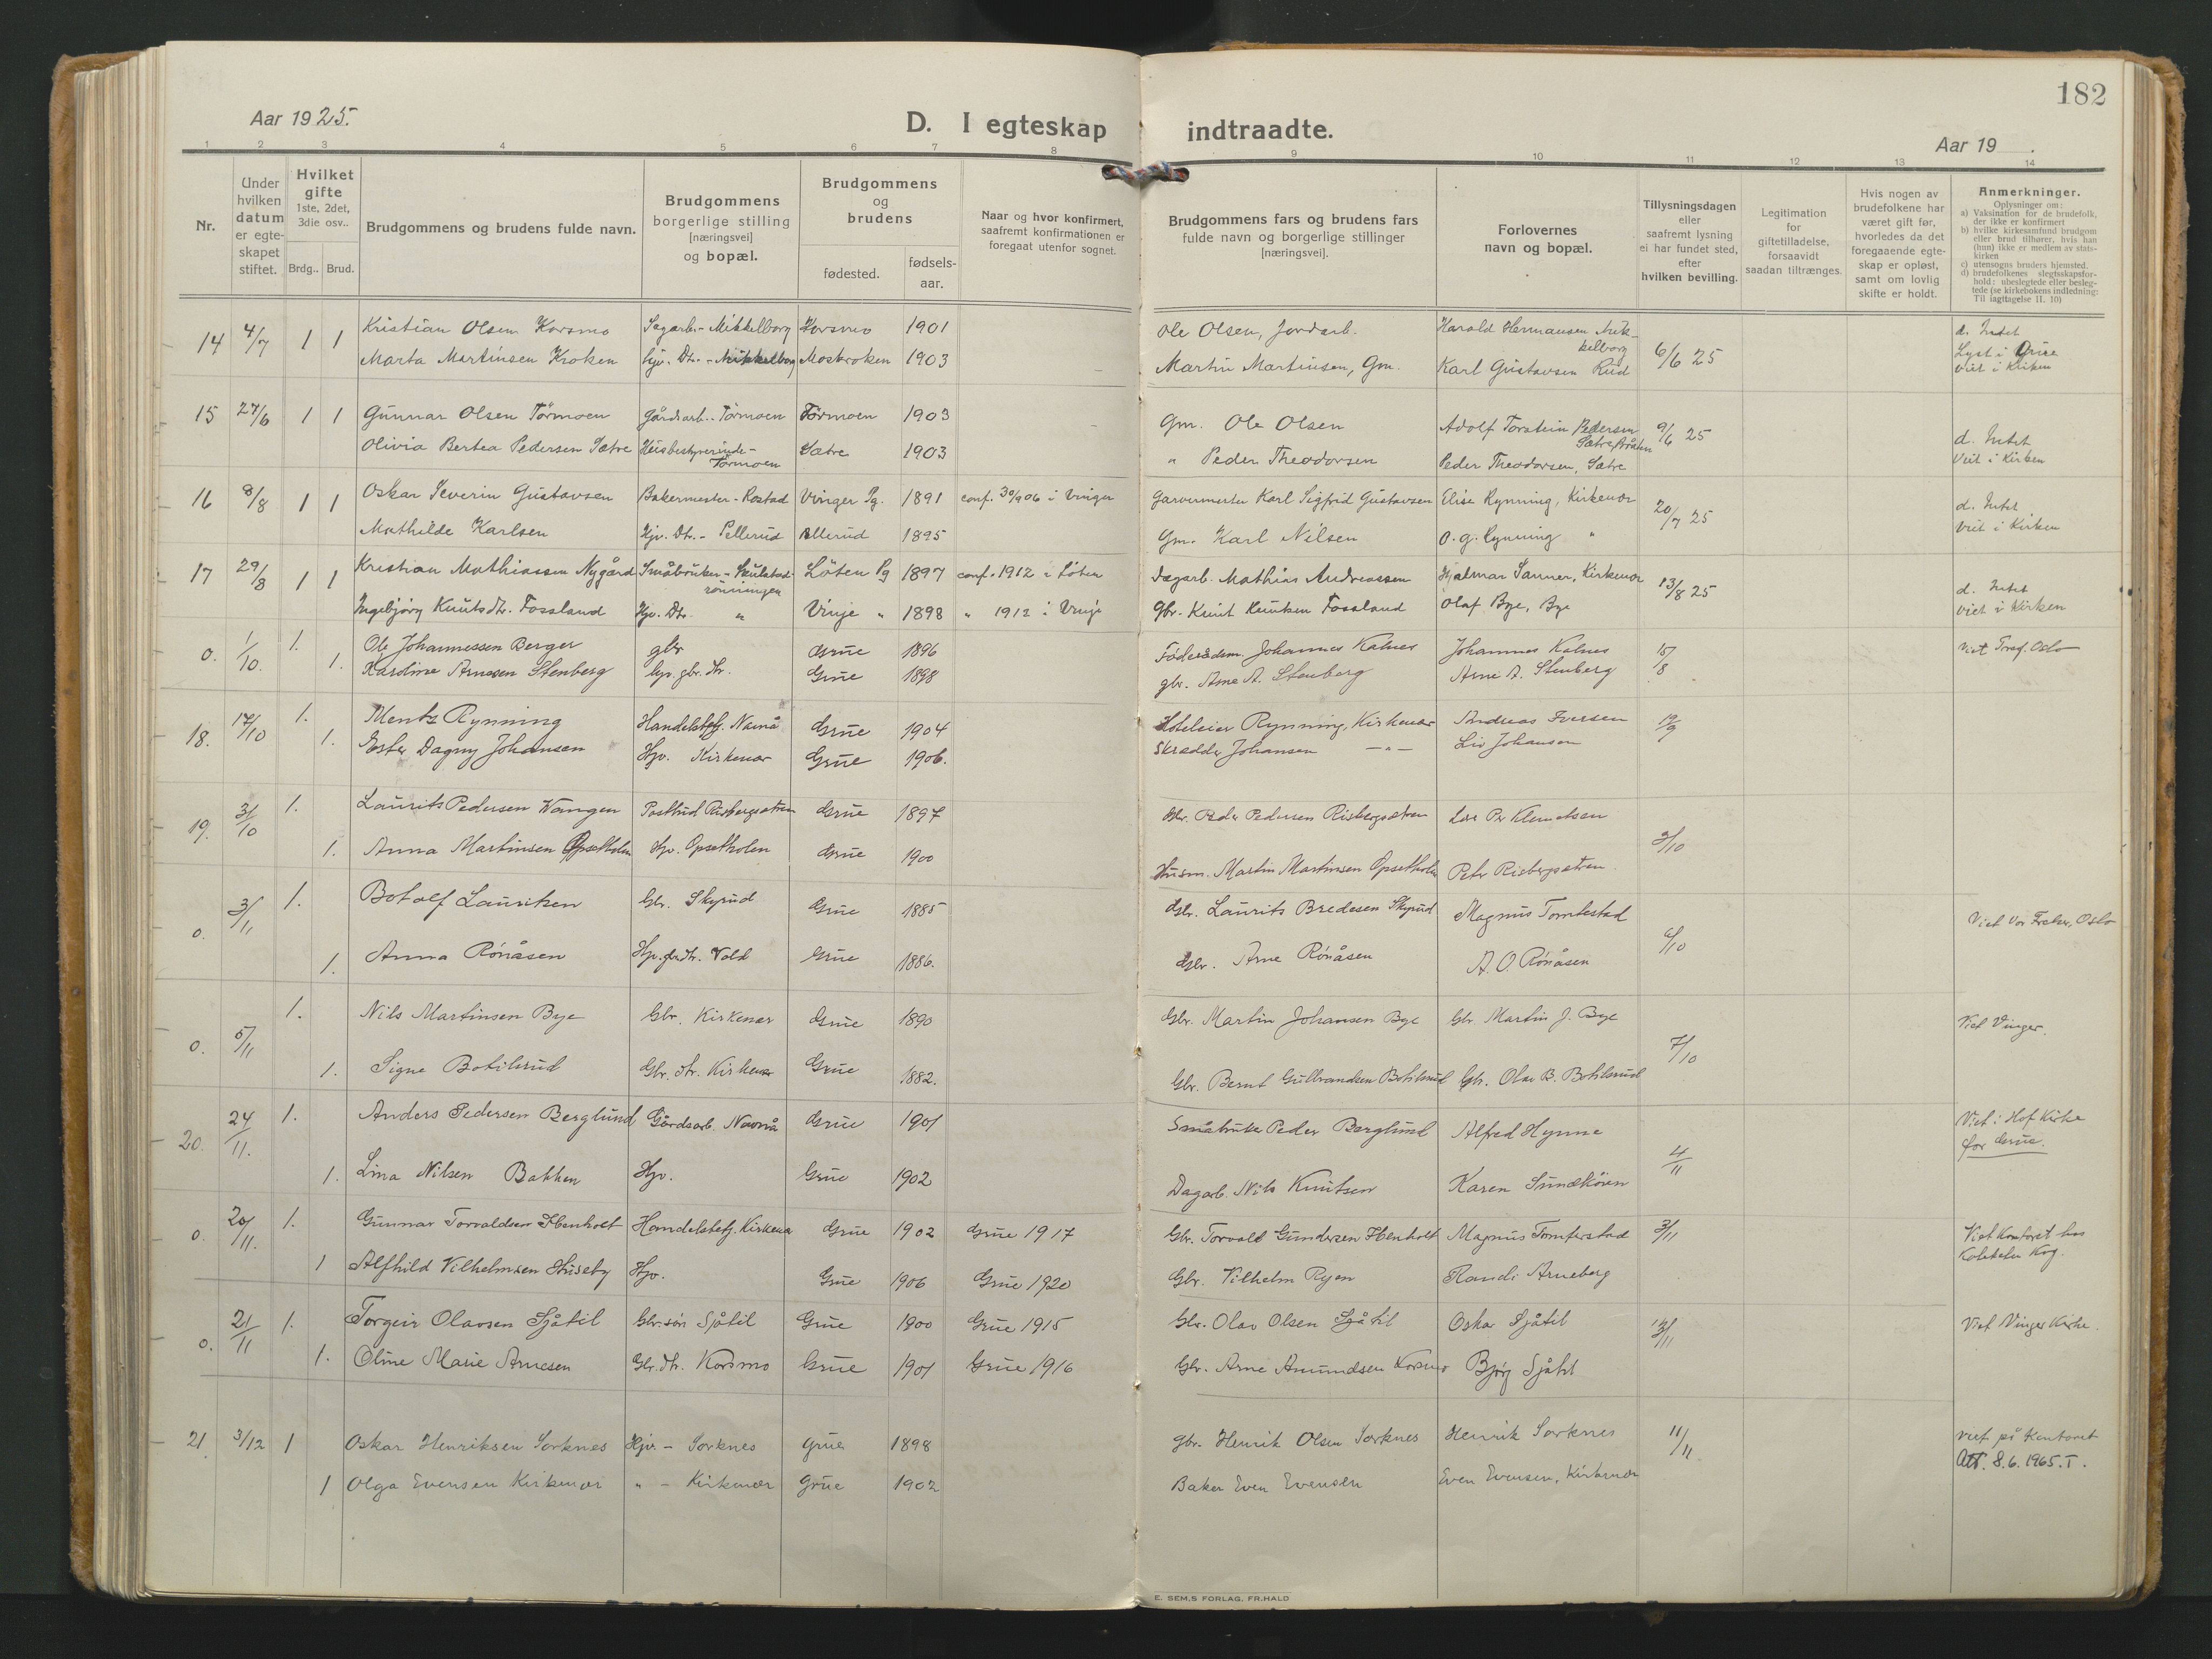 182
Aar 1925.
D. I egteskap indtraadte.
Aar 19 .
1 2 3 4 5 6 7 8 9 10 11 12 13 14
Nr.
Under hvilken datum er egte-skapet stiftet.
Hvilket gifte
1ste, 2det, 3die osv..
Brdg.. Brud.
Brudgommens og brudens fulde navn.
Brudgommens borgerlige stilling [næringsvei] og bopæl.
Brudgommens og brudens
fødested.
fødsels-aar.
Naar og hvor konfirmert, saafremt konfirmationen er foregaat utenfor sognet.
Brudgommens fars og brudens fars fulde navn og borgerlige stillinger [næringsvei].
Forlovernes navn og bopæl.
Tillysningsdagen eller saafremt lysning ei har fundet sted, efter hvilken bevilling.
Legitimation for giftetilladelse, forsaavidt saadan tiltrænges.
Hvis nogen av brudefolkene har været gift før, hvorledes da det foregaaende egte-skap er opløst, samt om lovlig skifte er holdt.
Anmerkninger.
Oplysninger om:
a) Vaksination for de brudefolk, der ikke er konfirmert
b) hvilke kirkesamfund brudgom eller brud tilhører, hvis han (hun) ikke er medlem av stats-kirken
c) utensogns bruders hjemsted.
d) brudefolkenes slegtsskapsfor-hold: ubeslegtede eller besleg-tede (se kirkebokens indledning: Til iagttagelse II. 10)
14 4/7 1 1 Kristian Olsen Korsmo Sagarb. - Mikkelborg Korsmo 1901 Ole Olsen, Jordarb. Harald Hermansen Mik-kelborg 6/6 25 d. Intet
Lyst i Grue
viet i Kirken
Marta Martinsen Kroken hjv. Dtr. - Mikkelborg Moskroken 1903 Martin Martinsen, Gm. Karl Gustavsen Rud
15 27/6 1 1 Gunnar Olsen Törmoen Gårdsarb. - Törmoen Törmoen 1903 Gm. Ole Olsen Adolf Torstein Pedersen Sætre 9/6 25 d. Intet
Viet i Kirken
Olivia Bertea Pedersen Sætre Husbestyrerinde - Törmoen Sætre 1903 " Peder Theodorsen Peder Theodorsen, Sætre
16 8/8 1 1 Oskar Severin Gustavsen Bakermester - Rostad Vinger Pg. 1891 conf. 30/9 06 i Vinger Garvermester Karl Sigfrid Gustavsen Elise Rynning, Kirkenær 20/7 25 d. Intet
viet i Kirken
Mathilde Karlsen Hjv. Dtr. - Pellerud Pellerud 1895 Gm. Karl Nilsen O. G. Rynning "
17 29/8 1 1 Kristian Mathiassen Nygård Småbruker - Skulstad-rönningen Löten Pg 1897 conf. 1912 i Löten Dagarb. Mathias Andreassen Hjalmar Sanner, Kirkenær 13/8 25 d. Intet
viet i Kirken
Ingebjörg Knutsdtr. Fossland Hjv. Dtr. " Vinje " 1898 " 1912 i Vinje Gbr. Knut Knutsen Fossland Olaf Bye, Bye
0. 1/10. 1. Ole Johannessen Berger gbr Grue 1896 Föderådsm. Johannes Kalnes Johannes Kalnes 15/8 viet Oslo
1. Karoline Arnesen Stenberg hjv. gbr. dtr. Grue 1898 gbr. Arne A. Stenberg Arne A. Stenberg
18. 17/10 1. Mentz Rynning Handelsbetj. Namnå Grue 1904 Hoteleier Rynning, Kirkenær Andreas Iversen 19/9
1. Ester Dagny Johansen Hjv. Kirkenær Grue 1906. Skrædder Johansen —"— Liv Johansen
19. 31/10 1. Laurits Pedersen Wangen Postbud Risbergsætren Grue 1897 Gbr. Peder Pedersen Risbergsætren Per Klemetsen 2/10
1. Anna Martinsen Opsetholen Hjv. Opsetholen Grue 1900 Husm. Martin Martinsen Opsetholen Peter Risbergsætren
0. 3/11 1. Botolf Lauritsen Gbr. Skyrud Grue 1885 Gbr. Laurits Bredesen Skyrud Magnus Tomtestad 6/10 Viet Vor Frelser, Oslo
1. Anna Rönåsen Hjv. gbrdtr. Vold Grue 1886. Gbr. Arne Rönåsen A. O. Rönåsen
0. 5/11 1. Nils Martinsen Bye Gbr. Kirkenær Grue 1890 Gbr. Martin Johansen Bye Gbr Martin J. Bye 7/10 Viet Vinger.
1. Signe Botilsrud Gbr. dtr. Kirkenær Grue 1882. Gbr. Bernt Gulbrandsen Botilsrud Gbr. Olav B. Botilsrud
20. 24/11. 1. Anders Pedersen Berglund Gårdsarb. Namnå Grue 1901 Småbruker Peder Berglund Alfred Hynne 4/11 Viet i Hof Kirke
for Grue.
1. Lina Nilsen Bakken Hjv. Grue 1902 Dagarb. Nils Knutsen Karen Sundköien
0. 20/11. 1. Gunnar Torvaldsen Ibenholt Handelsbetj. Kirkenær Grue 1902 Grue 1917 Gbr. Torvald Gundersen Ibenholt Magnus Tomterstad 3/11 Viet Kontoret hos
1 Alfhild Vilhelmsen Huseby Hjv. Grue 1906 Grue 1920 Gbr. Vilhelm Ryen Randi Arneberg
0. 21/11 1. Torgeir Olavsen Sjåtil Gbr. sön Sjåtil Grue 1900 Grue 1915 Gbr. Olav Olsen Sjåtil Oskar Sjåtil Viet Vinger Kirke.
1. Oline Marie Arnesen Gbr. dtr. Korsmo Grue 1901 Grue 1916 Gbr. Arne Amundsen Korsmo Bjørg Sjåtil
21 3/12 1 Oskar Henriksen Sorknes Hjv. - Sorknes Grue 1898 gbr. Henrik Olsen Sorknes Henrik Sorknes 11/11 viet på Kontoret
Att. 8.6.1965. I.
1 Olga Evensen Kirkenær " - Kirkenær Grue 1902 Baker Even Evensen Even Evensen, Kirkenær
E. SEM,S FORLAG, FR.HALD